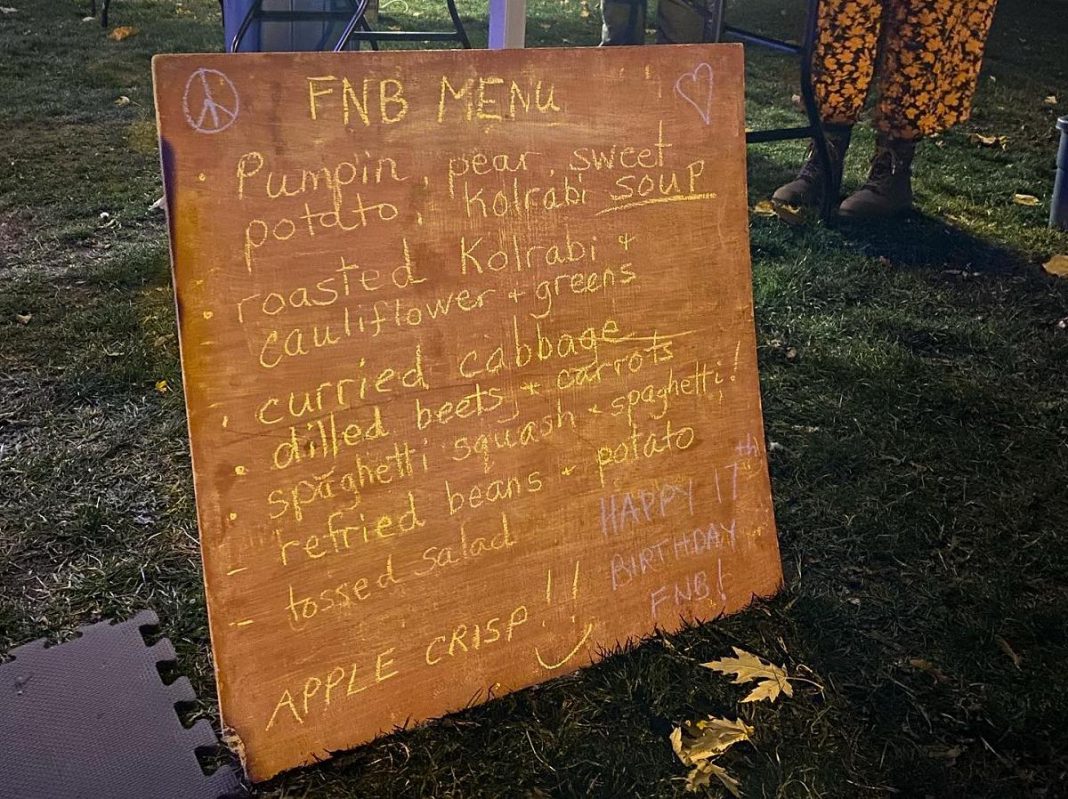 FNB MENU
• Pumpin, pear, sweet
potato, Kolrabi soup
• roasted Kolrabi +
cauliflower + greens
• curried cabbage
• dilled beets + carrots
• spaghetti squash + spaghetti!
- refried beans + potato
- tossed salad
APPLE CRISP!!
HAPPY 17th
BIRTHDAY
FNB!